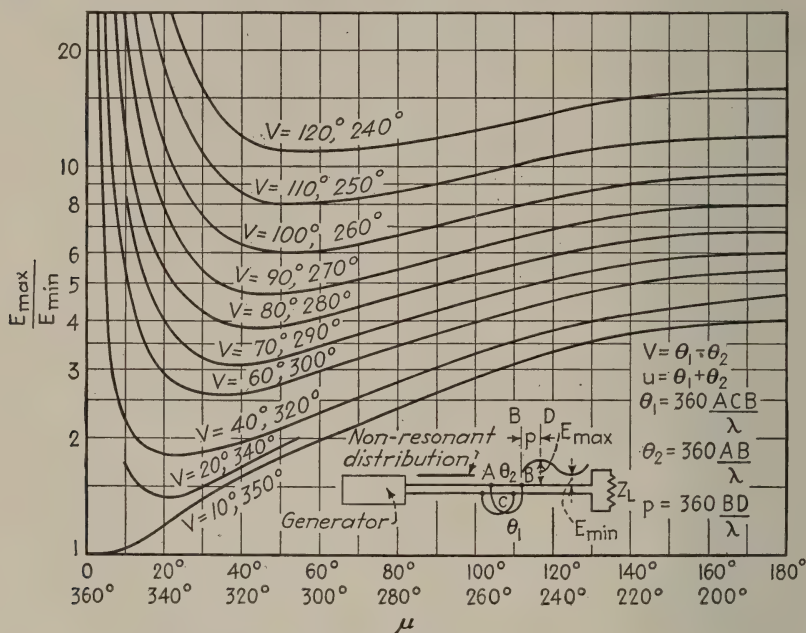 20
10
8
6
5
4
3
2
1
E max
E min
V = 120,° 240°
V = 110,° 250°
V = 100,° 260°
V = 90,° 270°
V = 80,° 280°
V = 70,° 290°
V = 60,° 300°
V = 40,° 320°
V = 20,° 340°
V = 10,° 350°
V = θ₁ - θ₂
u = θ₁ + θ₂
θ₁ = 360 ACB
λ
θ₂ = 360 AB
λ
p = 360 BD
λ
B D
p
E max
Non-resonant
distribution
A θ₂ B
C
Z L
Generator
θ₁
E min
0 20° 40° 60° 80° 100° 120° 140° 160° 180°
360° 340° 320° 300° 280° 260° 240° 220° 200°
μ